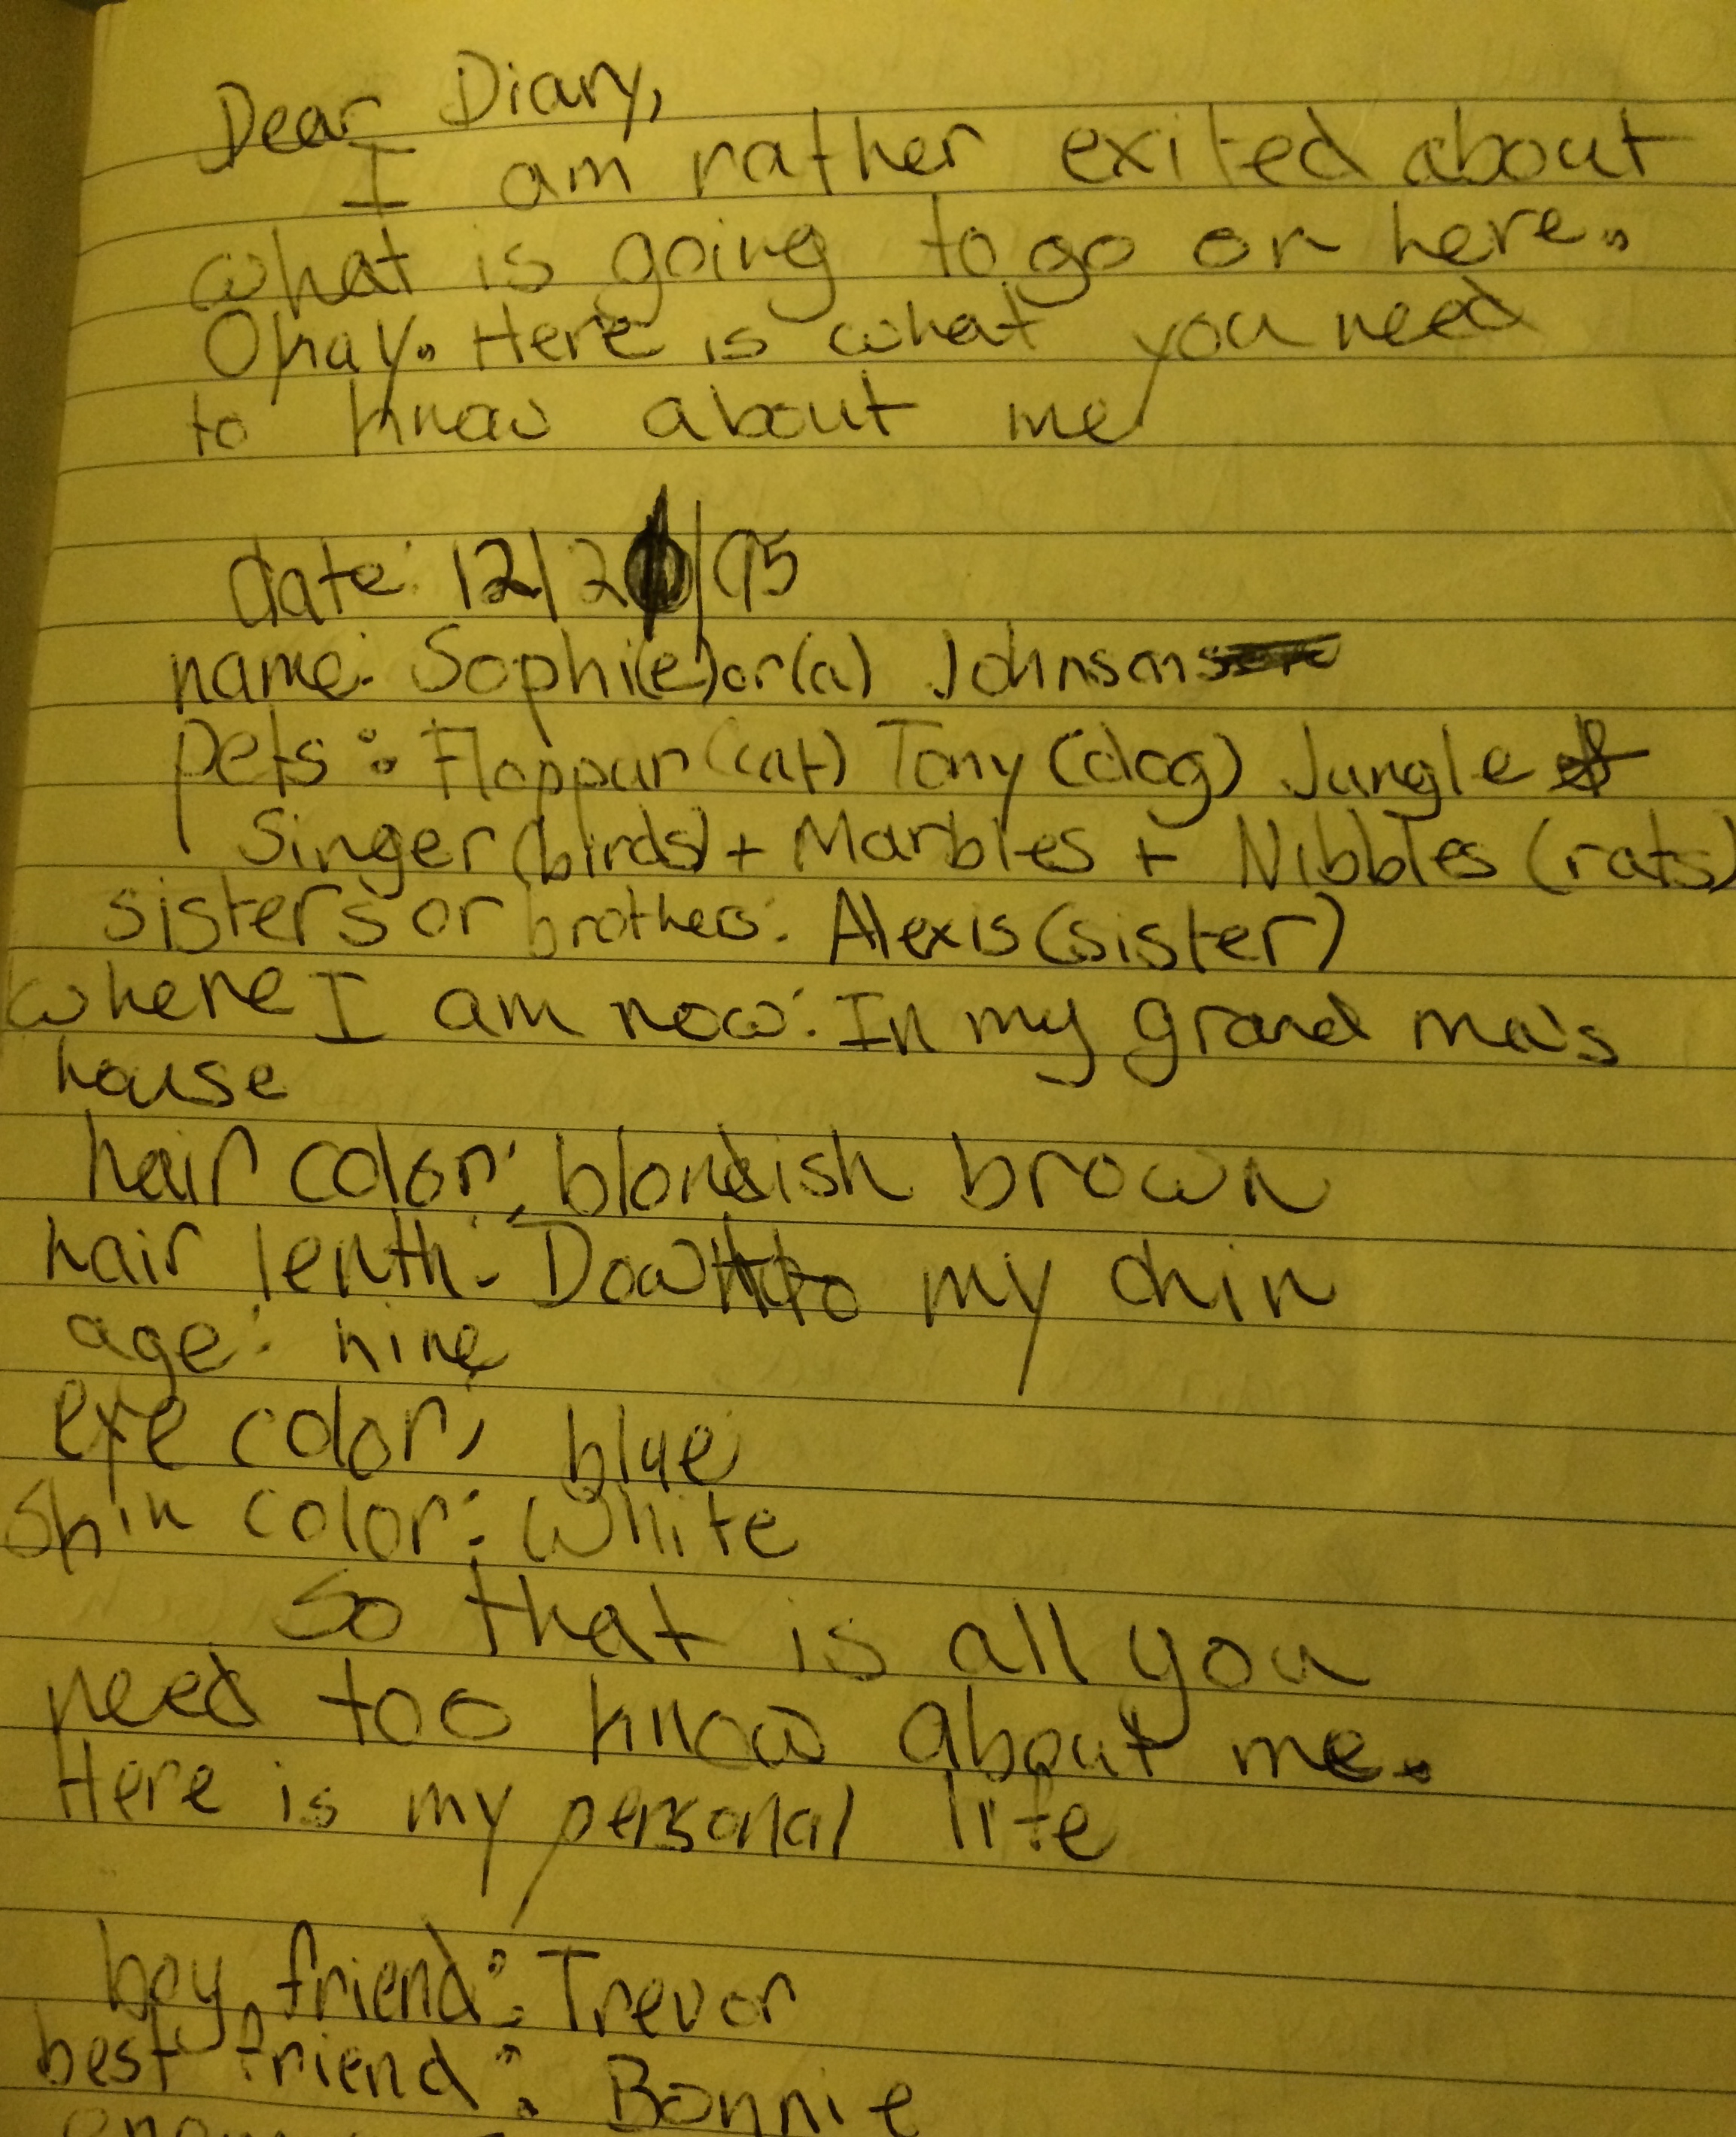 Dear Diary,
I am rather exited about
what is going to go on here.
Okay. Here is what you need
to know about me
date: 12/2 /95
name: Sophi(e)or(a) Johnson
pets: Floppur(cat) Tony (dog) Jungle &
Singer(birds) + Marbles + Nibbles (rats)
sisters or brothers: Alexis (sister)
where I am now: In my grand ma's
house
hair color: blondish brown
hair lenth: Down to my chin
age: nine
eye color: blue
Skin color: White
So that is all you
need too know about me.
Here is my personal life
boy friend: Trevor
best friend: Bonnie